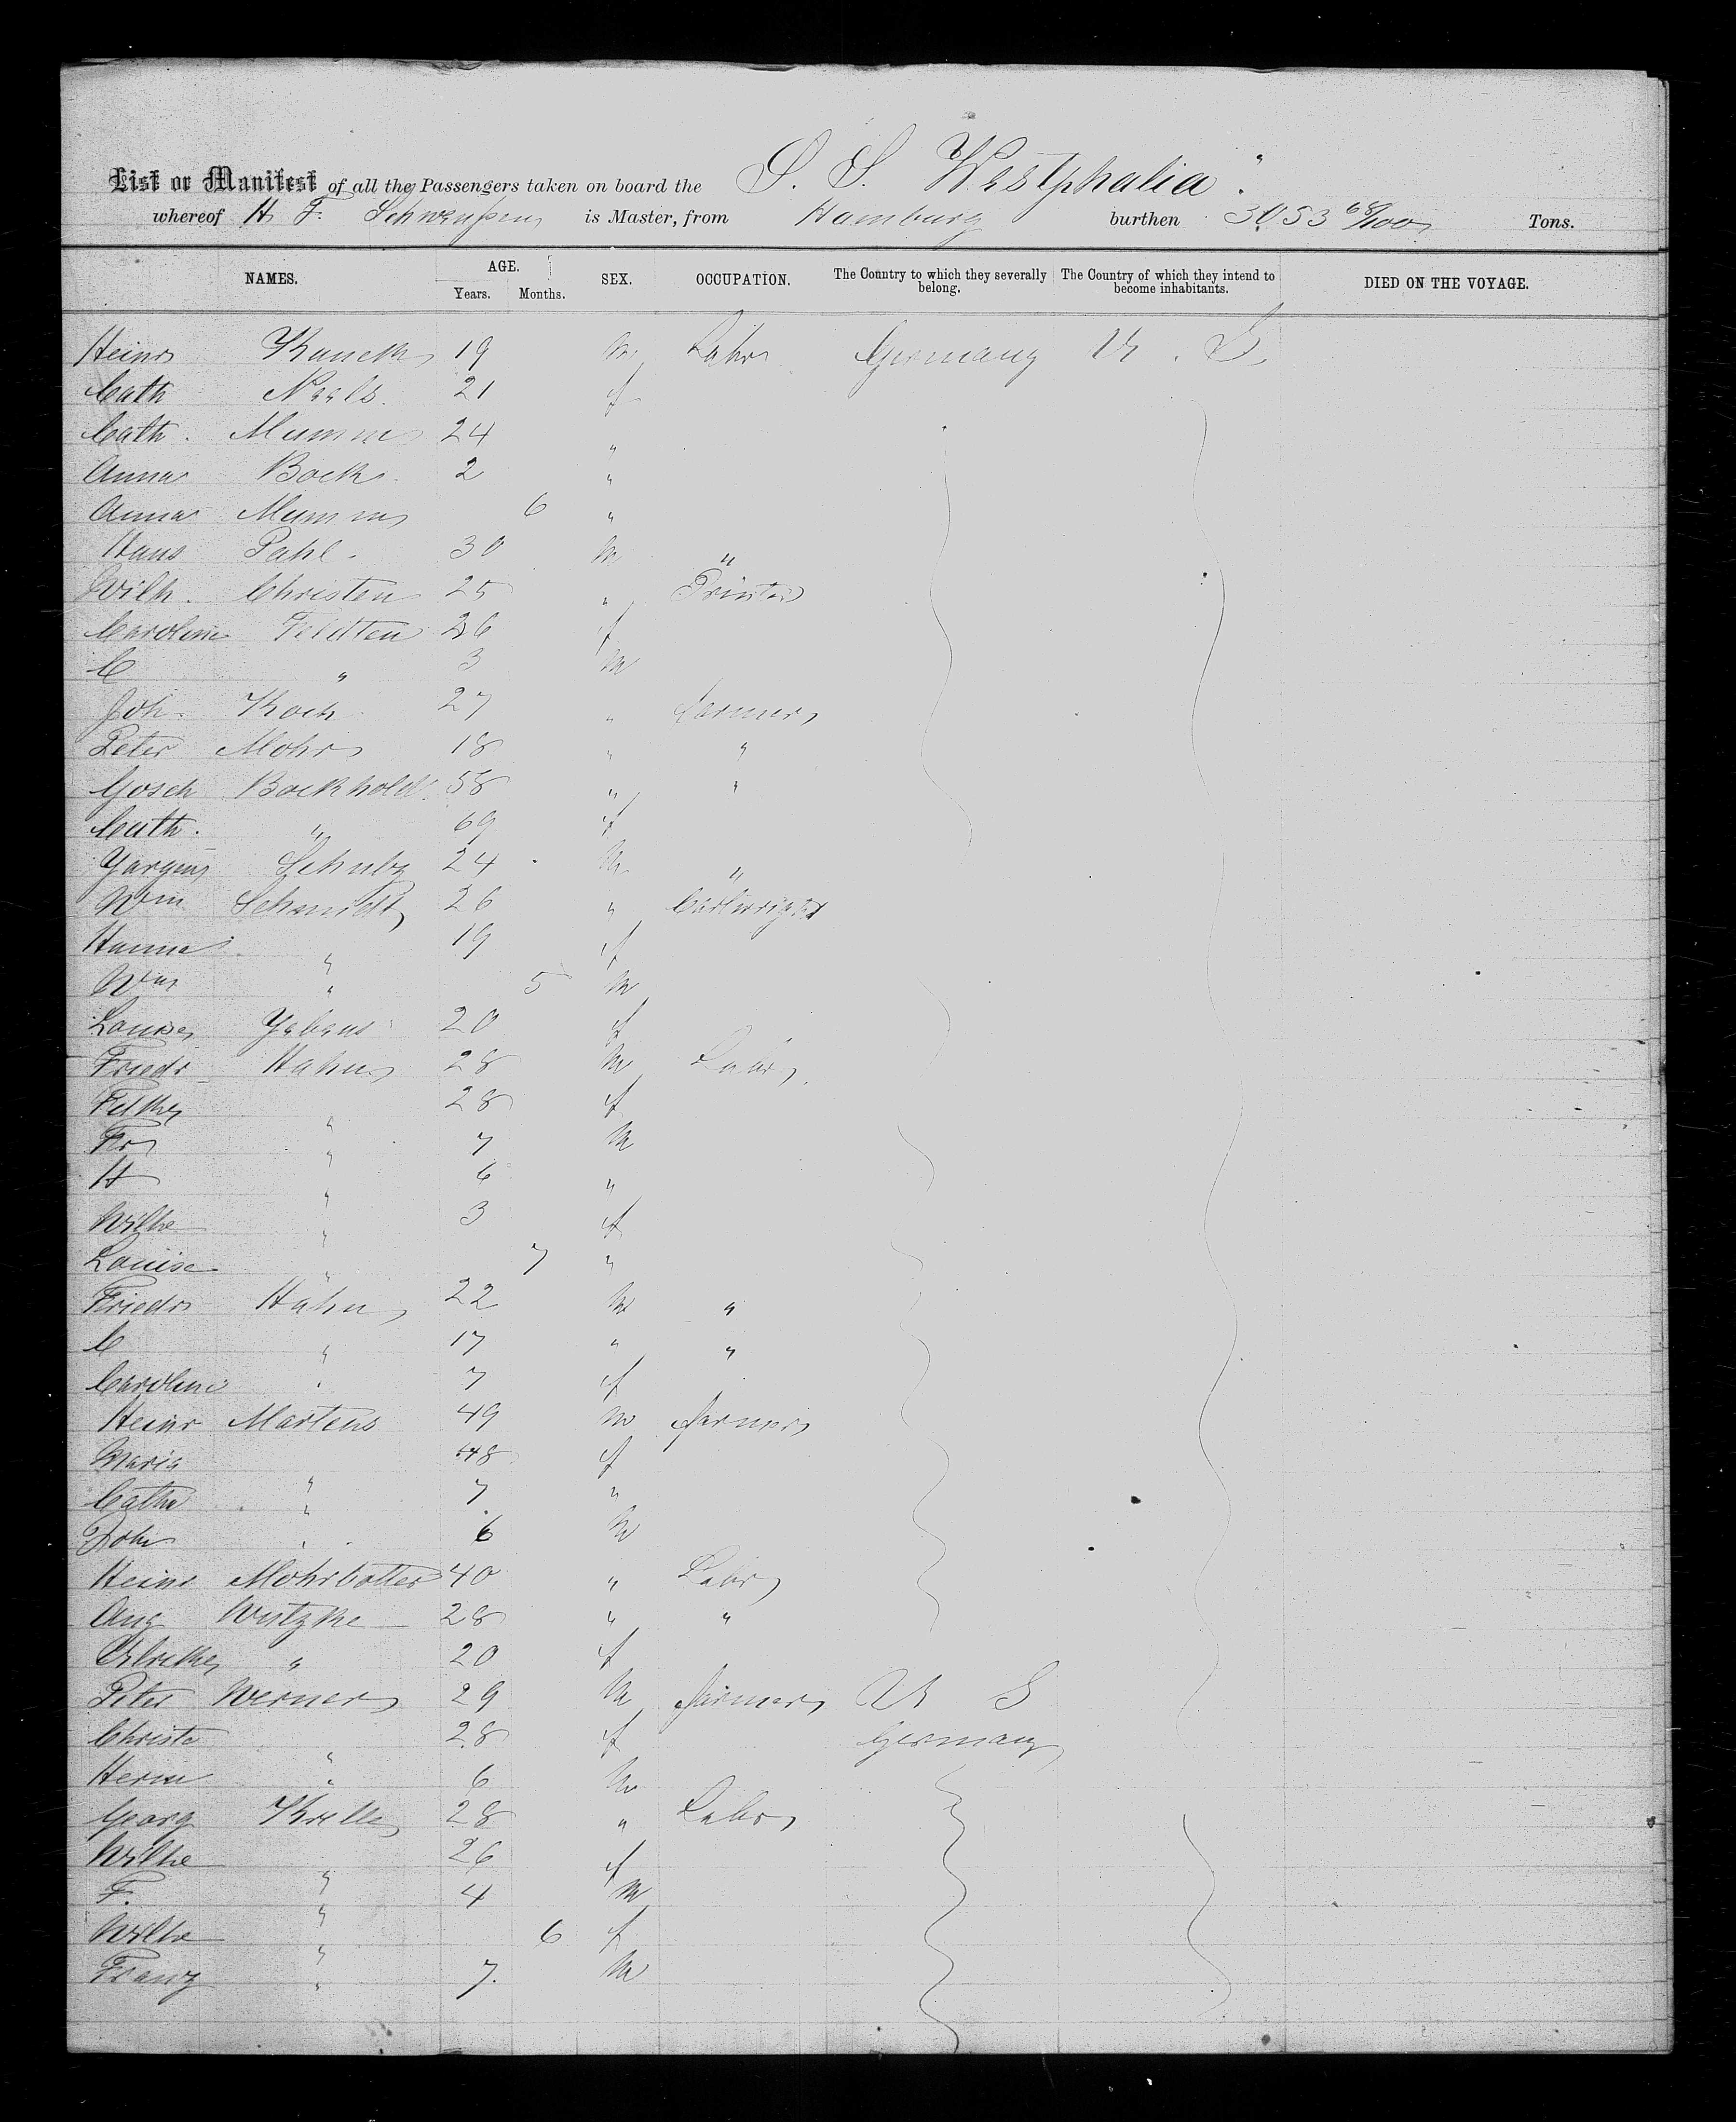 List or Manifest of all the Passengers taken on board the S. S. "Westphalia"
whereof H. F. Schwensen is Master, from Hamburg burthen 3053 68/100 Tons.
NAMES. AGE. Years. Months. SEX. OCCUPATION. The Country to which they severally belong. The Country of which they intend to become inhabitants. DIED ON THE VOYAGE.
Heinr 19 m Labr Germany U. S.
Cath Neels 21 f
Cath. Mumm 24 "
Anna Bock 2 "
Anna Mumm 6 "
Hans Pahl 30 m "
Wilh. Christen 25 " Printer
Caroline Feldten 26 f
C " 3 m
Joh. Koch 27 " farmer
Peter Mohr 18 " "
Gosch Bockhold 58 " "
Cath. " 69 f
Schulz 24 m "
Wm Schmidt 26 " Cartwright
Hanna " 19 f
Wm " 5 m
Louise 20 f
Friedr Hahn 28 m Labr
28 f
Fr " 7 m
H " 6 "
Wilhe " 3 f
Louise " 7 "
Friedr Hahn 22 m "
C " 17 " "
Caroline " 7 f
Heinr Martens 49 m farmer
Maria 48 f
Cathe " 7 "
John " 6 m
Heinr Mohrbotter 40 " Labr
Aug Witzke 28 " "
Ulrike " 20 f
Peter Werner 29 m farmer U S
Christe " 28 f Germany
Herm " 6 m
Georg Krelle 28 " Labr
Wilhe 26 f
F. " 4 m
Wilhe " 6 f
Franz " 7. m